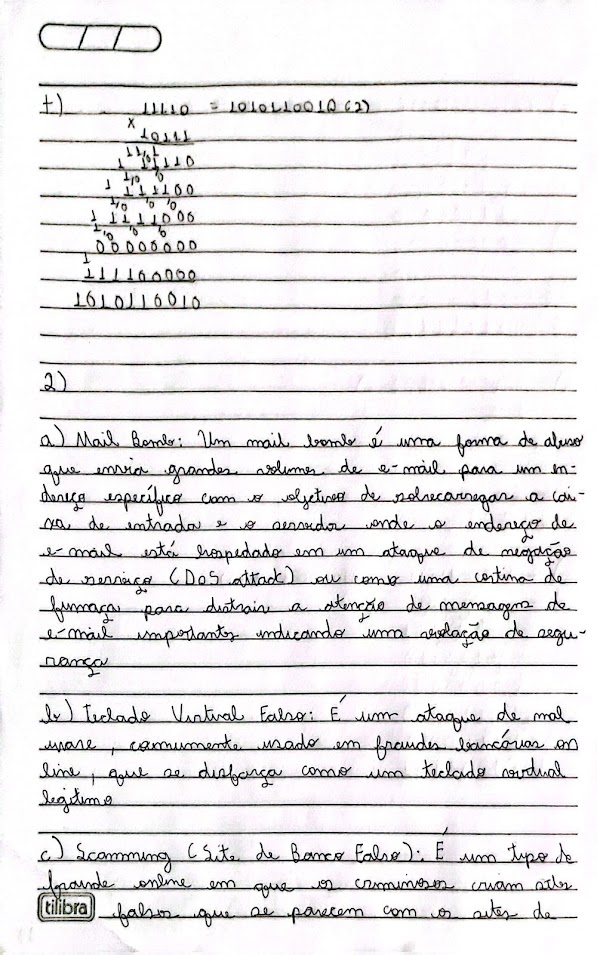 t) 11110 = 1010110010 (2)
x
10111
1 1 1 1
1 11110
1 1 0 0
1 111100
1 0 0 0
1 1111000
1 0 0 0
00000000
1
111100000
1010110010
2)
a) Mail Bomb: Um mail bomb é uma forma de abuso
que envia grandes volumes de e-mail para um en-
dereço específico com o objetivo de sobrecarregar a cai-
xa de entrada e o servidor onde o endereço de
e-mail está hospedado em um ataque de negação
de serviço (DoS attack) ou como uma cortina de
fumaça para distrair a atenção de mensagens de
e-mail importantes indicando uma violação de segu-
rança
b) Teclado Virtual Falso: É um ataque de mal
ware, comumente usado em fraudes bancárias on
line, que se disfarça como um teclado virtual
legítimo
c) Scamming (Site de Banco Falso): É um tipo de
fraude online em que os criminosos criam sites
tilibra falsos que se parecem com os sites de